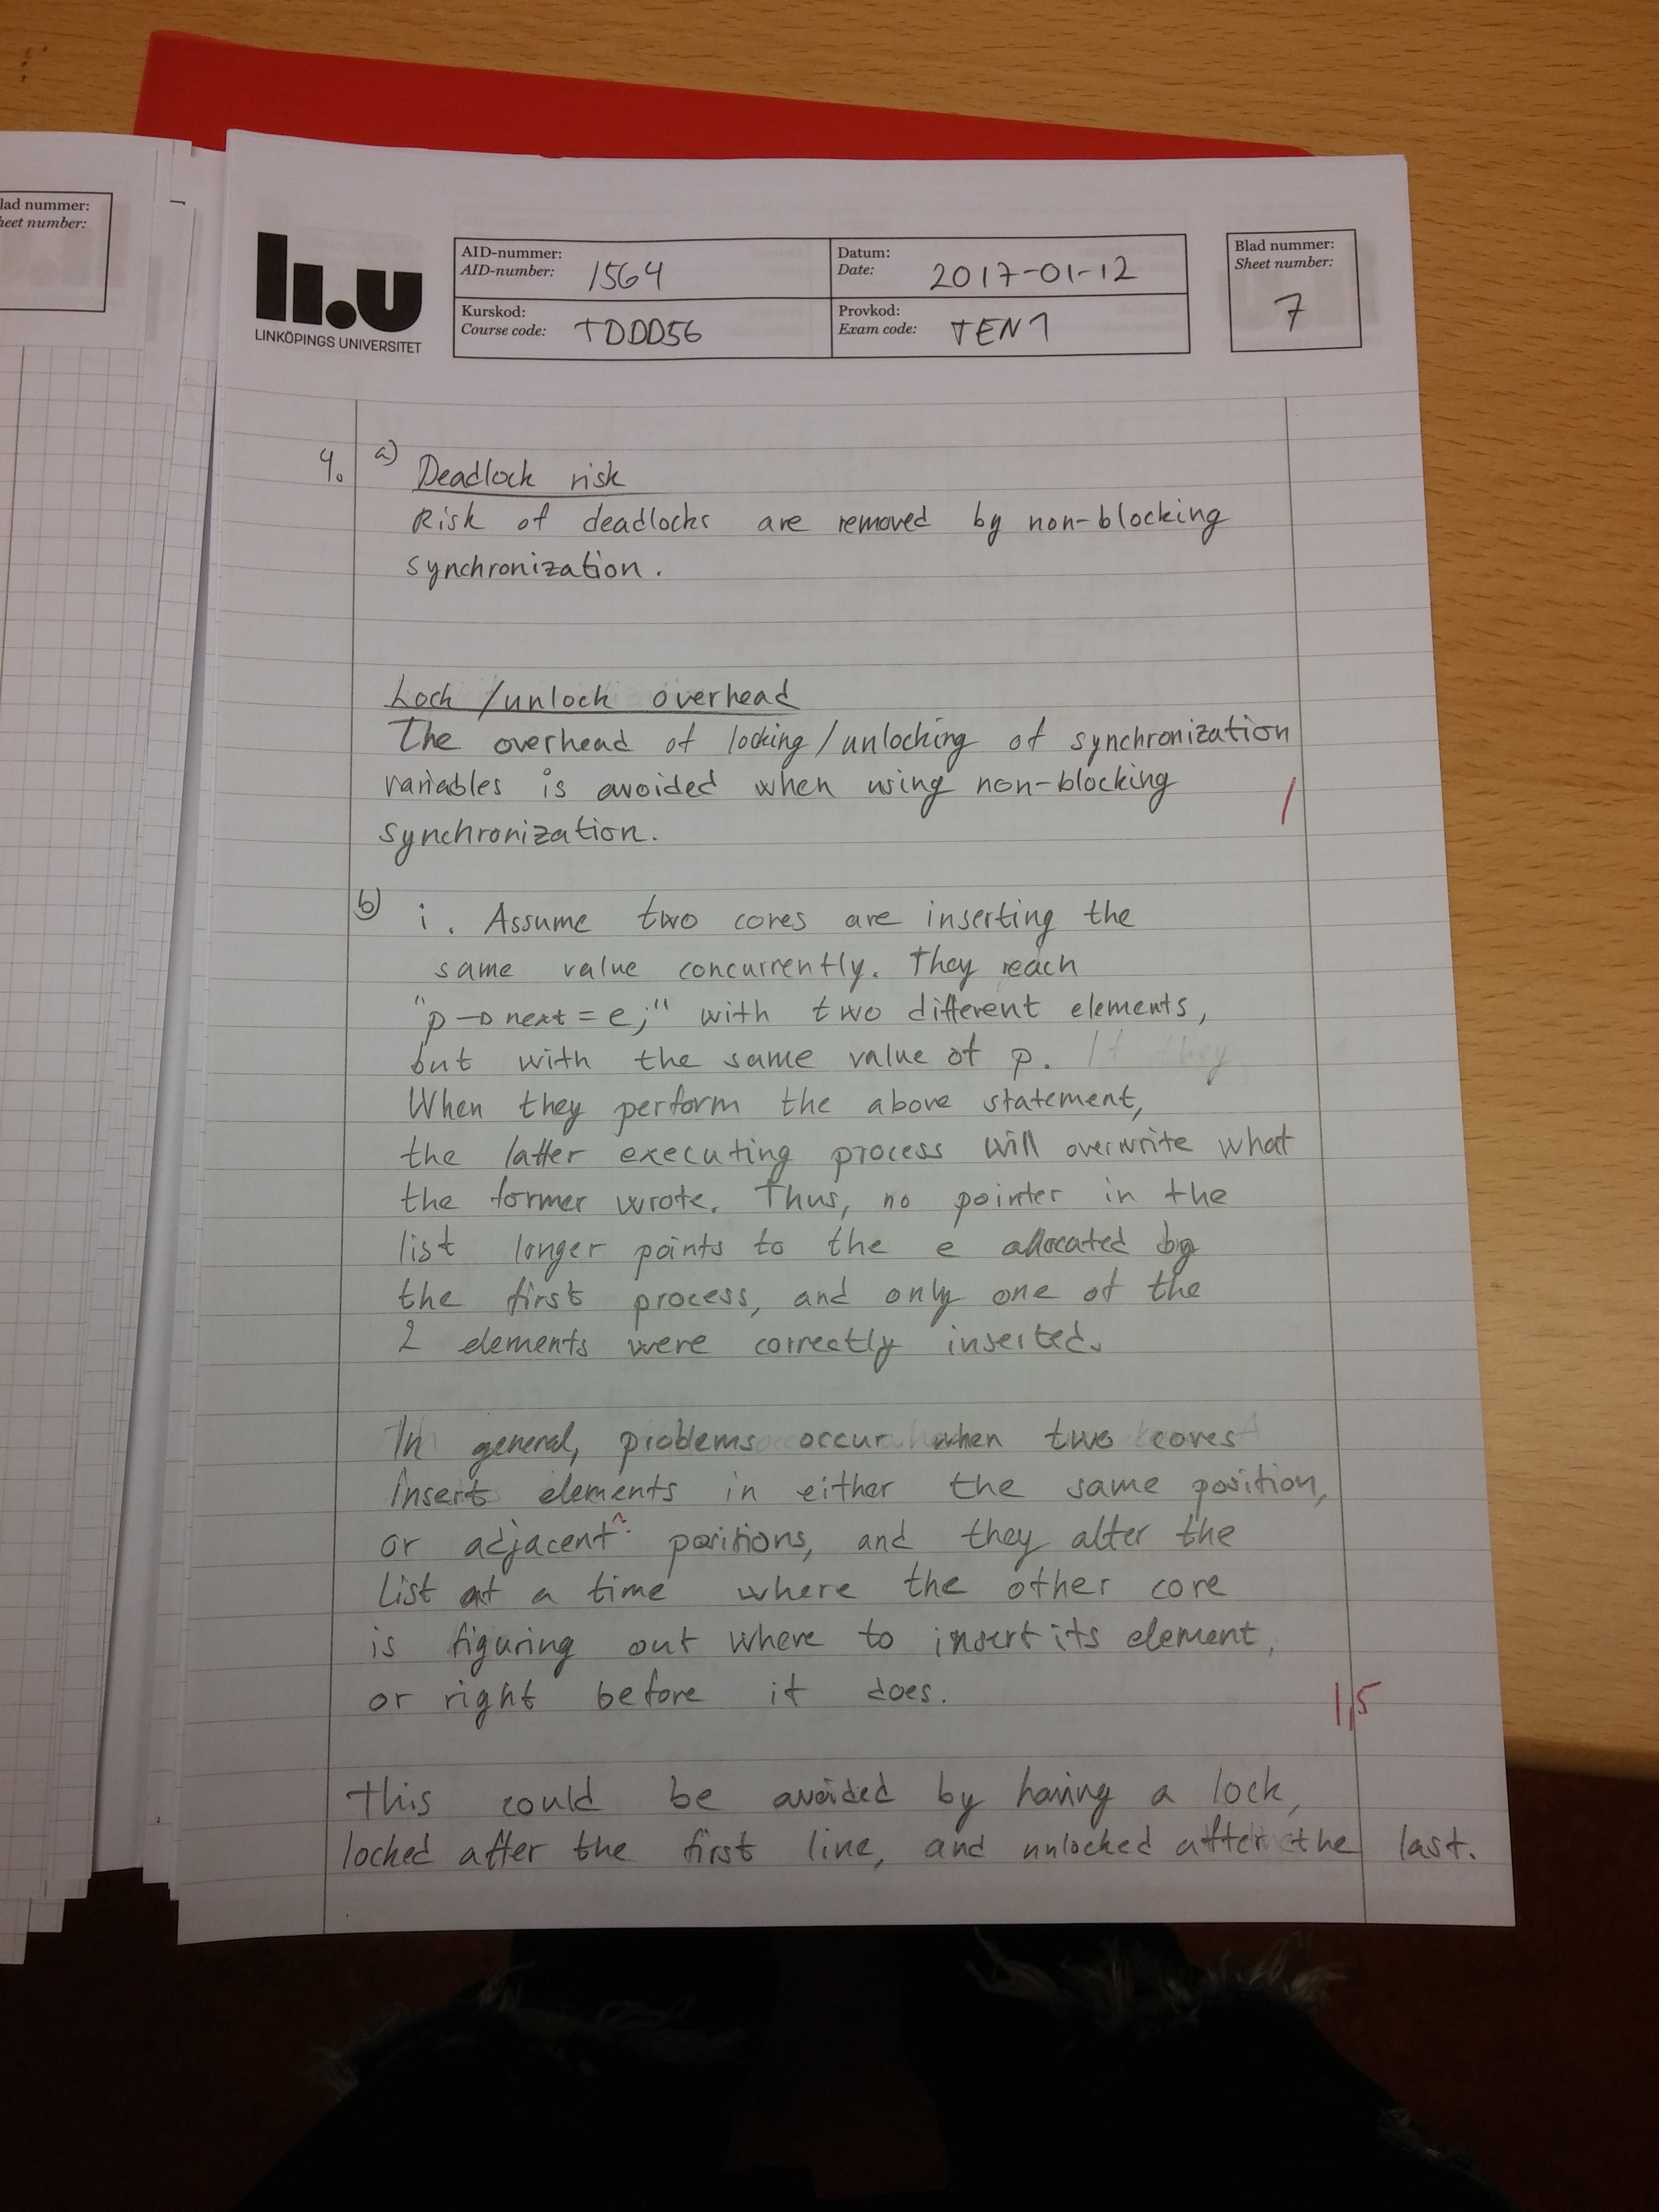 lad nummer:
heet number:
LiU
LINKÖPINGS UNIVERSITET
AID-nummer:
AID-number: 1564
Datum:
Date: 2017-01-12
Kurskod:
Course code: TDDD56
Provkod:
Exam code: TEN1
Blad nummer:
Sheet number:
7
4. a) Deadlock risk
Risk of deadlocks are removed by non-blocking
synchronization.
Lock/unlock overhead
The overhead of locking/unlocking of synchronization
variables is avoided when using non-blocking
synchronization.
/
b) i. Assume two cores are inserting the
same value concurrently. They reach
"p->next = e;" with two different elements,
but with the same value of p.
When they perform the above statement,
the latter executing process will overwrite what
the former wrote. Thus, no pointer in the
list longer points to the e allocated by
the first process, and only one of the
2 elements were correctly inserted.
In general, problems occur when two cores
insert elements in either the same position,
or adjacent positions, and they alter the
list at a time where the other core
is figuring out where to insert its element,
or right before it does.
1,5
This could be avoided by having a lock,
locked after the first line, and unlocked after the last.